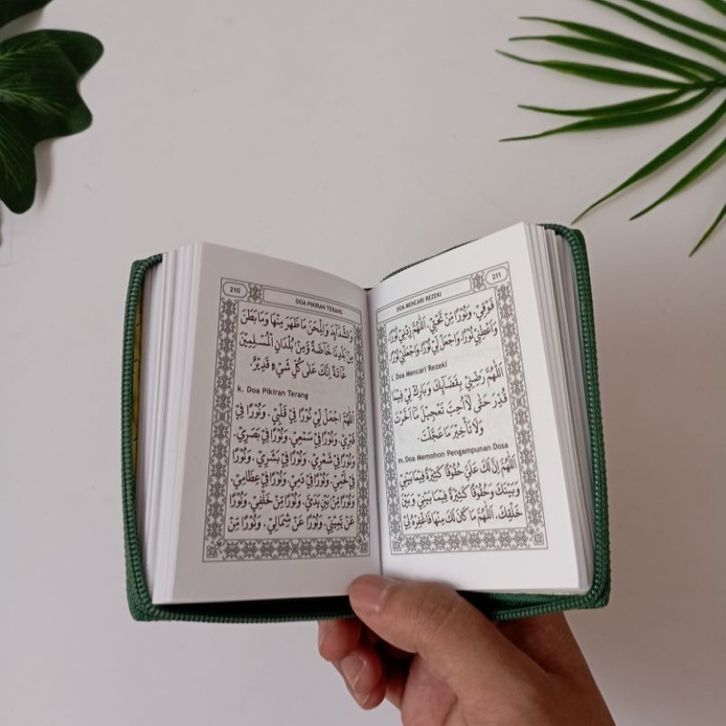 210
DOA PIKIRAN TERANG
وَالشَّدَائِدَ وَالْمِحَنَ مَا ظَهَرَ مِنْهَا وَمَا بَطَنَ
مِنْ بَلَدِنَا خَاصَّةً وَمِنْ بُلْدَانِ الْمُسْلِمِيْنَ
عَامَّةً اِنَّكَ عَلَى كُلِّ شَيْءٍ قَدِيْرٌ.
k. Doa Pikiran Terang
اَللّٰهُمَّ اجْعَلْ لِيْ نُوْرًا فِيْ قَلْبِيْ. وَنُوْرًا فِيْ
قَبْرِيْ. وَنُوْرًا فِيْ سَمْعِيْ. وَنُوْرًا فِيْ بَصَرِيْ.
وَنُوْرًا فِيْ شَعْرِيْ. وَنُوْرًا فِيْ بَشَرِيْ. وَنُوْرًا
فِيْ لَحْمِيْ. وَنُوْرًا فِيْ دَمِيْ. وَنُوْرًا فِيْ عِظَامِيْ.
وَنُوْرًا مِنْ بَيْنِ يَدَيَّ. وَنُوْرًا مِنْ خَلْفِيْ. وَنُوْرًا
عَنْ يَمِيْنِيْ. وَنُوْرًا عَنْ شِمَالِيْ. وَنُوْرًا مِنْ
DOA MENCARI REZEKI
211
فَوْقِيْ. وَنُوْرًا مِنْ تَحْتِيْ. اَللّٰهُمَّ زِدْنِيْ نُوْرًا
وَاَعْطِنِيْ نُوْرًا. وَاجْعَلْ لِيْ نُوْرًا. وَاجْعَلْنِيْ نُوْرًا.
l. Doa Mencari Rezeki
اَللّٰهُمَّ رَضِّنِيْ بِقَضَائِكَ وَبَارِكْ لِيْ فِيْمَا
قُدِّرَ حَتّٰى لَا اُحِبَّ تَعْجِيْلَ مَا اَخَّرْتَ
وَلَا تَأْخِيْرَ مَا عَجَّلْتَ.
m. Doa Memohon Pengampunan Dosa
اَللّٰهُمَّ اِنَّ لَكَ عَلَيَّ حُقُوْقًا كَثِيْرَةً فِيْمَا بَيْنِيْ
وَبَيْنَكَ وَحُقُوْقًا كَثِيْرَةً فِيْمَا بَيْنِيْ وَبَيْنَ
خَلْقِكَ. اَللّٰهُمَّ مَا كَانَ لَكَ مِنْهَا فَاغْفِرْهُ لِيْ